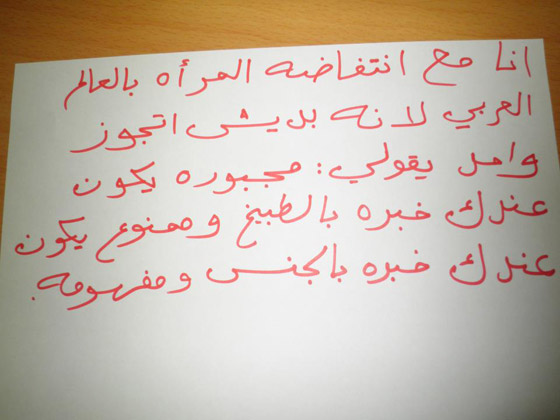 انا مع انتفاضه المرأه بالعالم
العربي لانه بديش اتجوز
واحد يقولي: مجبوره يكون
عندك خبره بالطبيخ وممنوع يكون
عندك خبره بالجنس ومفهومه.